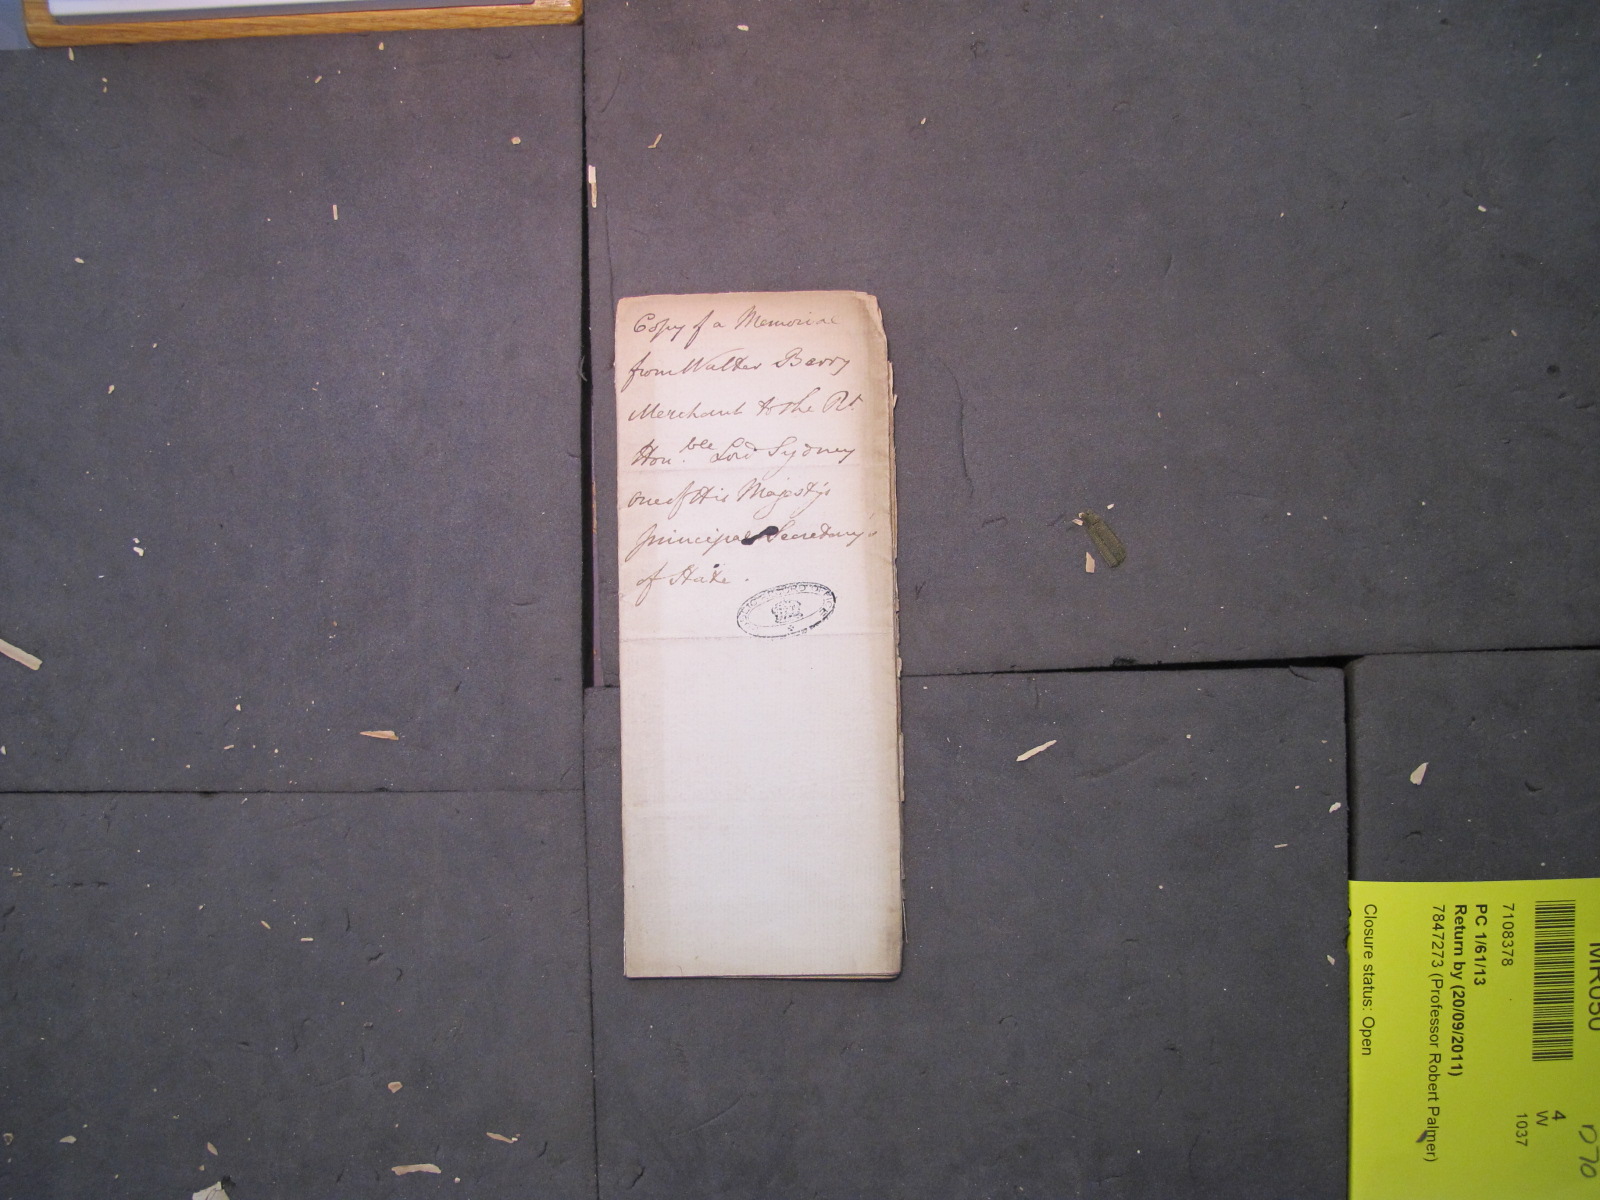 Copy of a Memorial
from Walter Barry
Merchant to the Rt
Hon.ble Lord Sydney
one of His Majesty's
principal Secretary's
of State.
PUBLIC RECORD OFFICE
7108378
PC 1/61/13
Return by (20/09/2011)
7847273 (Professor Robert Palmer)
Closure status: Open
4
W
1037